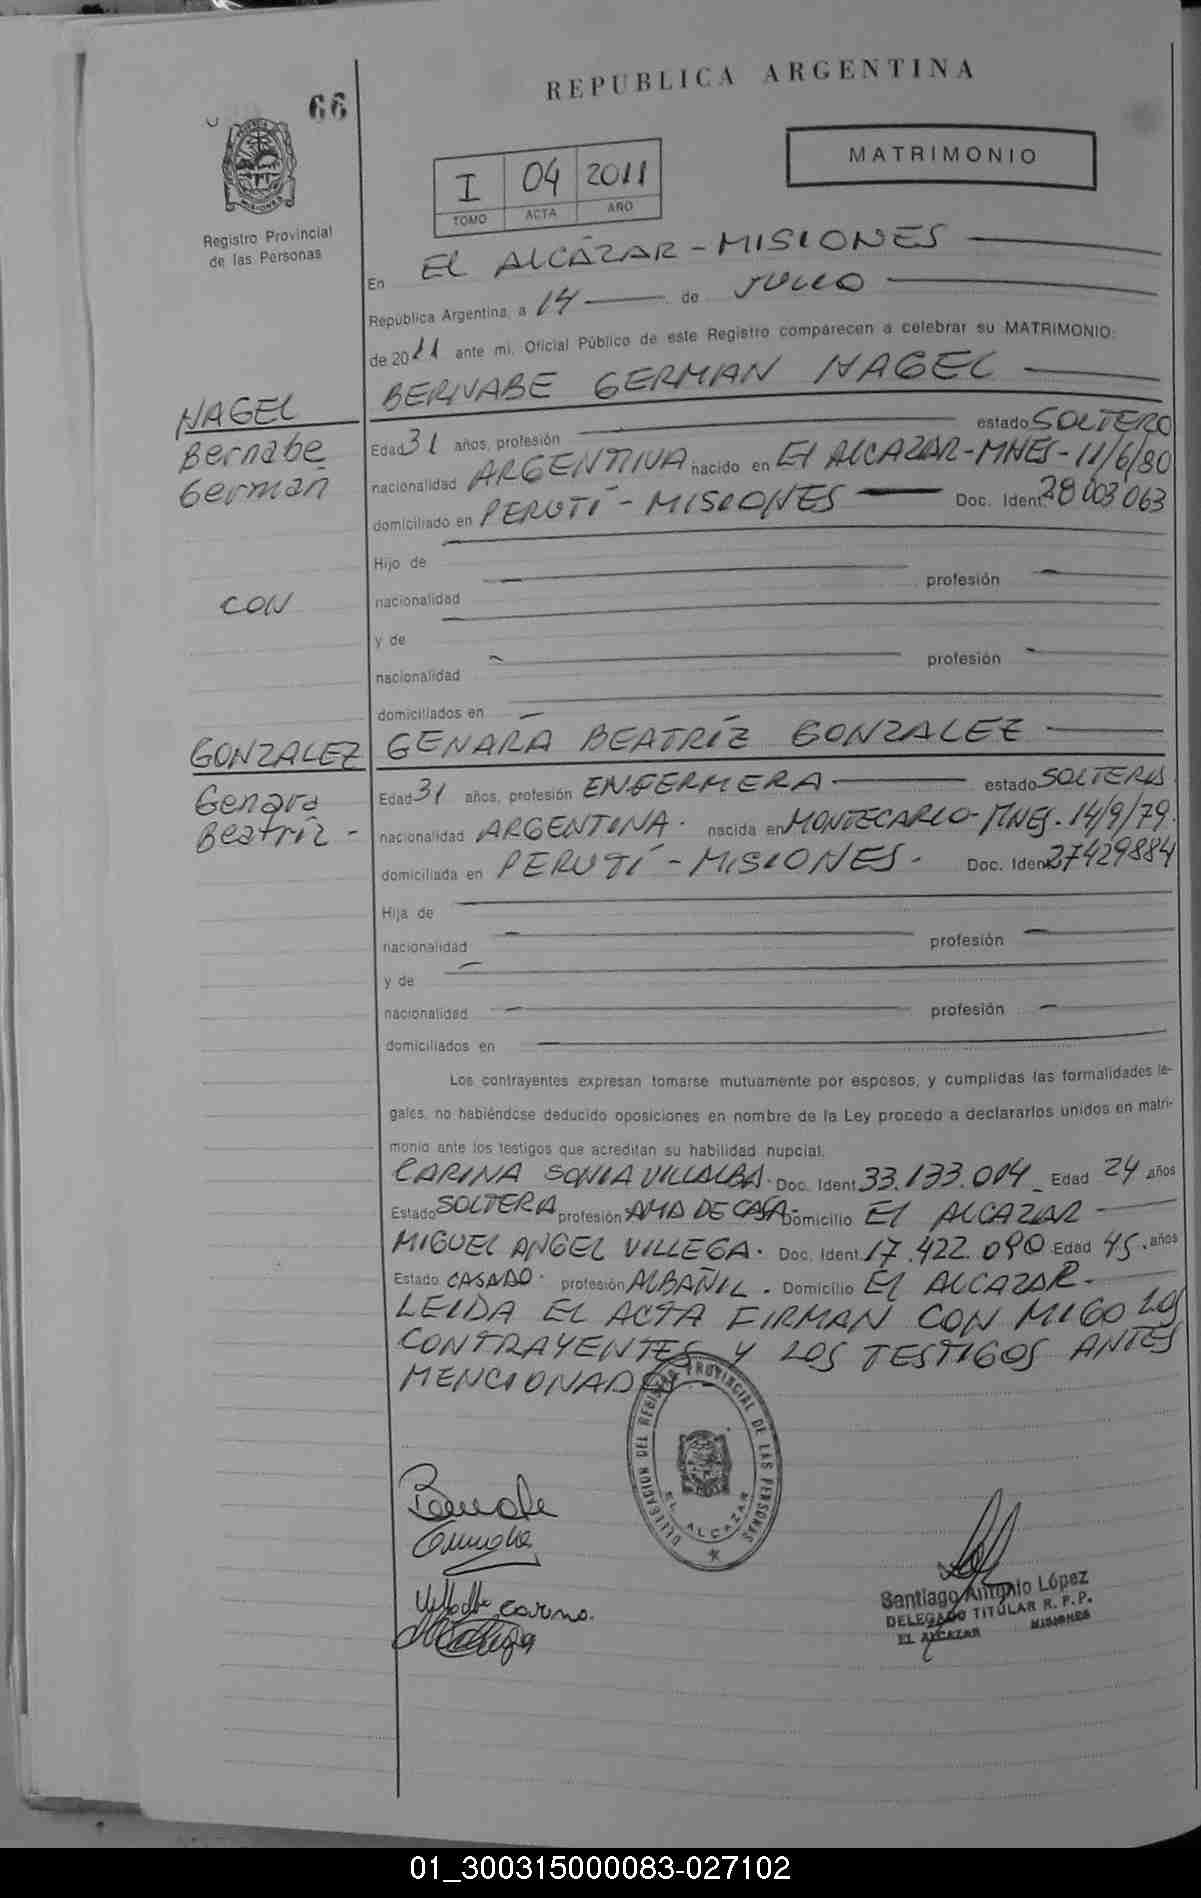 REPUBLICA ARGENTINA
66
MATRIMONIO
I 04 2011
TOMO ACTA AÑO
Registro Provincial
de las Personas
En EL ALCÁZAR - MISIONES
República Argentina, a 14 de JULIO
de 2011 ante mi, Oficial Público de este Registro comparecen a celebrar su MATRIMONIO:
BERNABE GERMAN NAGEL
NAGEL
Bernabe
German
Edad 31 años, profesión estado SOLTERO
nacionalidad ARGENTINA nacido en El ALCAZAR-MNES-11/6/80
domiciliado en PERUTÍ - MISIONES Doc. Ident. 28 003 063
Hijo de
nacionalidad profesión
CON
y de
nacionalidad profesión
domiciliados en
GONZALEZ
Genara
Beatríz -
GENARA BEATRÍZ GONZALEZ
Edad 31 años, profesión ENFERMERA estado SOLTERA
nacionalidad ARGENTINA. nacida en MONTECARLO-MNES. 14/9/79.
domiciliada en PERUTÍ - MISIONES. Doc. Ident. 27429884
Hija de
nacionalidad profesión
y de
nacionalidad profesión
domiciliados en
Los contrayentes expresan tomarse mutuamente por esposos, y cumplidas las formalidades le-
gales, no habiéndose deducido oposiciones en nombre de la Ley procedo a declararlos unidos en matri-
monio ante los testigos que acreditan su habilidad nupcial.
CARINA SONIA VILLALBA. Doc. Ident. 33.133.014 Edad 24 años
Estado SOLTERA profesión AMA DE CASA Domicilio El ALCAZAR
MIGUEL ANGEL VILLEGA. Doc. Ident. 17.422.090 Edad 45. años
Estado CASADO. profesión ALBAÑIL. Domicilio El ALCAZAR.
LEIDA EL ACTA FIRMAN CON MIGO LOS
CONTRAYENTES Y LOS TESTIGOS ANTES
MENCIONADOS
DELEGACION DEL REGISTRO PROVINCIAL DE LAS PERSONAS
EL ALCAZAR
Villalba carina.
Santiago Antonio López
DELEGADO TITULAR R. P. P.
EL ALCAZAR MISIONES
01_300315000083-027102